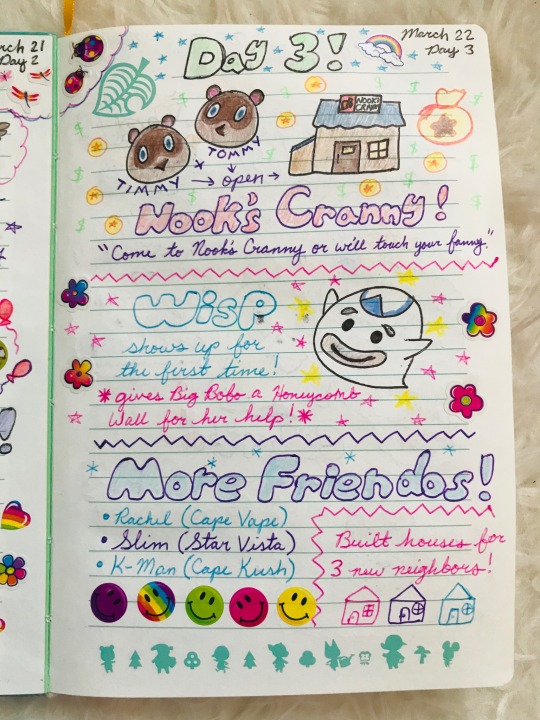 rch 21
Day 2
March 22
Day 3
Day 3!
NOOK'S
CRANNY
TIMMY
TOMMY
→ open →
Nook's Cranny!
"Come to Nook's Cranny or we'll touch your fanny."
Wisp
shows up for
the first time!
*gives Big Bobo a Honeycomb
Wall for her help!*
More Friendos!
• Rachel (Cape Vape)
• Slim (Star Vista)
• K-Man (Cape Kush)
Built houses for
3 new neighbors!